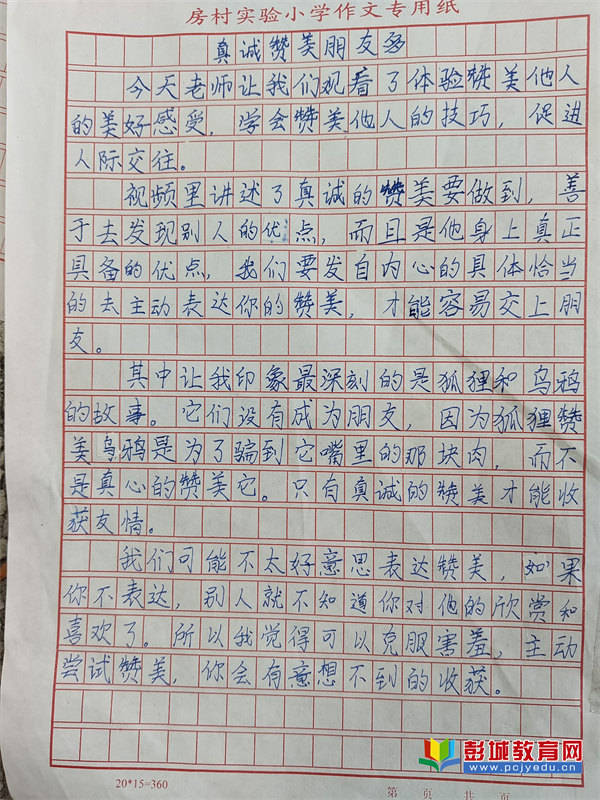 房村实验小学作文专用纸
真诚赞美朋友多
今天老师让我们观看了体验赞美他人
的美好感受，学会赞美他人的技巧，促进
人际交往。
视频里讲述了真诚的赞美要做到，善
于去发现别人的优点，而且是他身上真正
具备的优点，我们要发自内心的具体恰当
的去主动表达你的赞美，才能容易交上朋
友。
其中让我印象最深刻的是狐狸和乌鸦
的故事。它们没有成为朋友，因为狐狸赞
美乌鸦是为了骗到它嘴里的那块肉，而不
是真心的赞美它。只有真诚的赞美才能收
获友情。
我们可能不太好意思表达赞美，如果
你不表达，别人就不知道你对他的欣赏和
喜欢了。所以我觉得可以克服害羞，主动
尝试赞美，你会有意想不到的收获。
20*15=360
第 页 共 页
彭城教育网
www.pcjyedu.cn